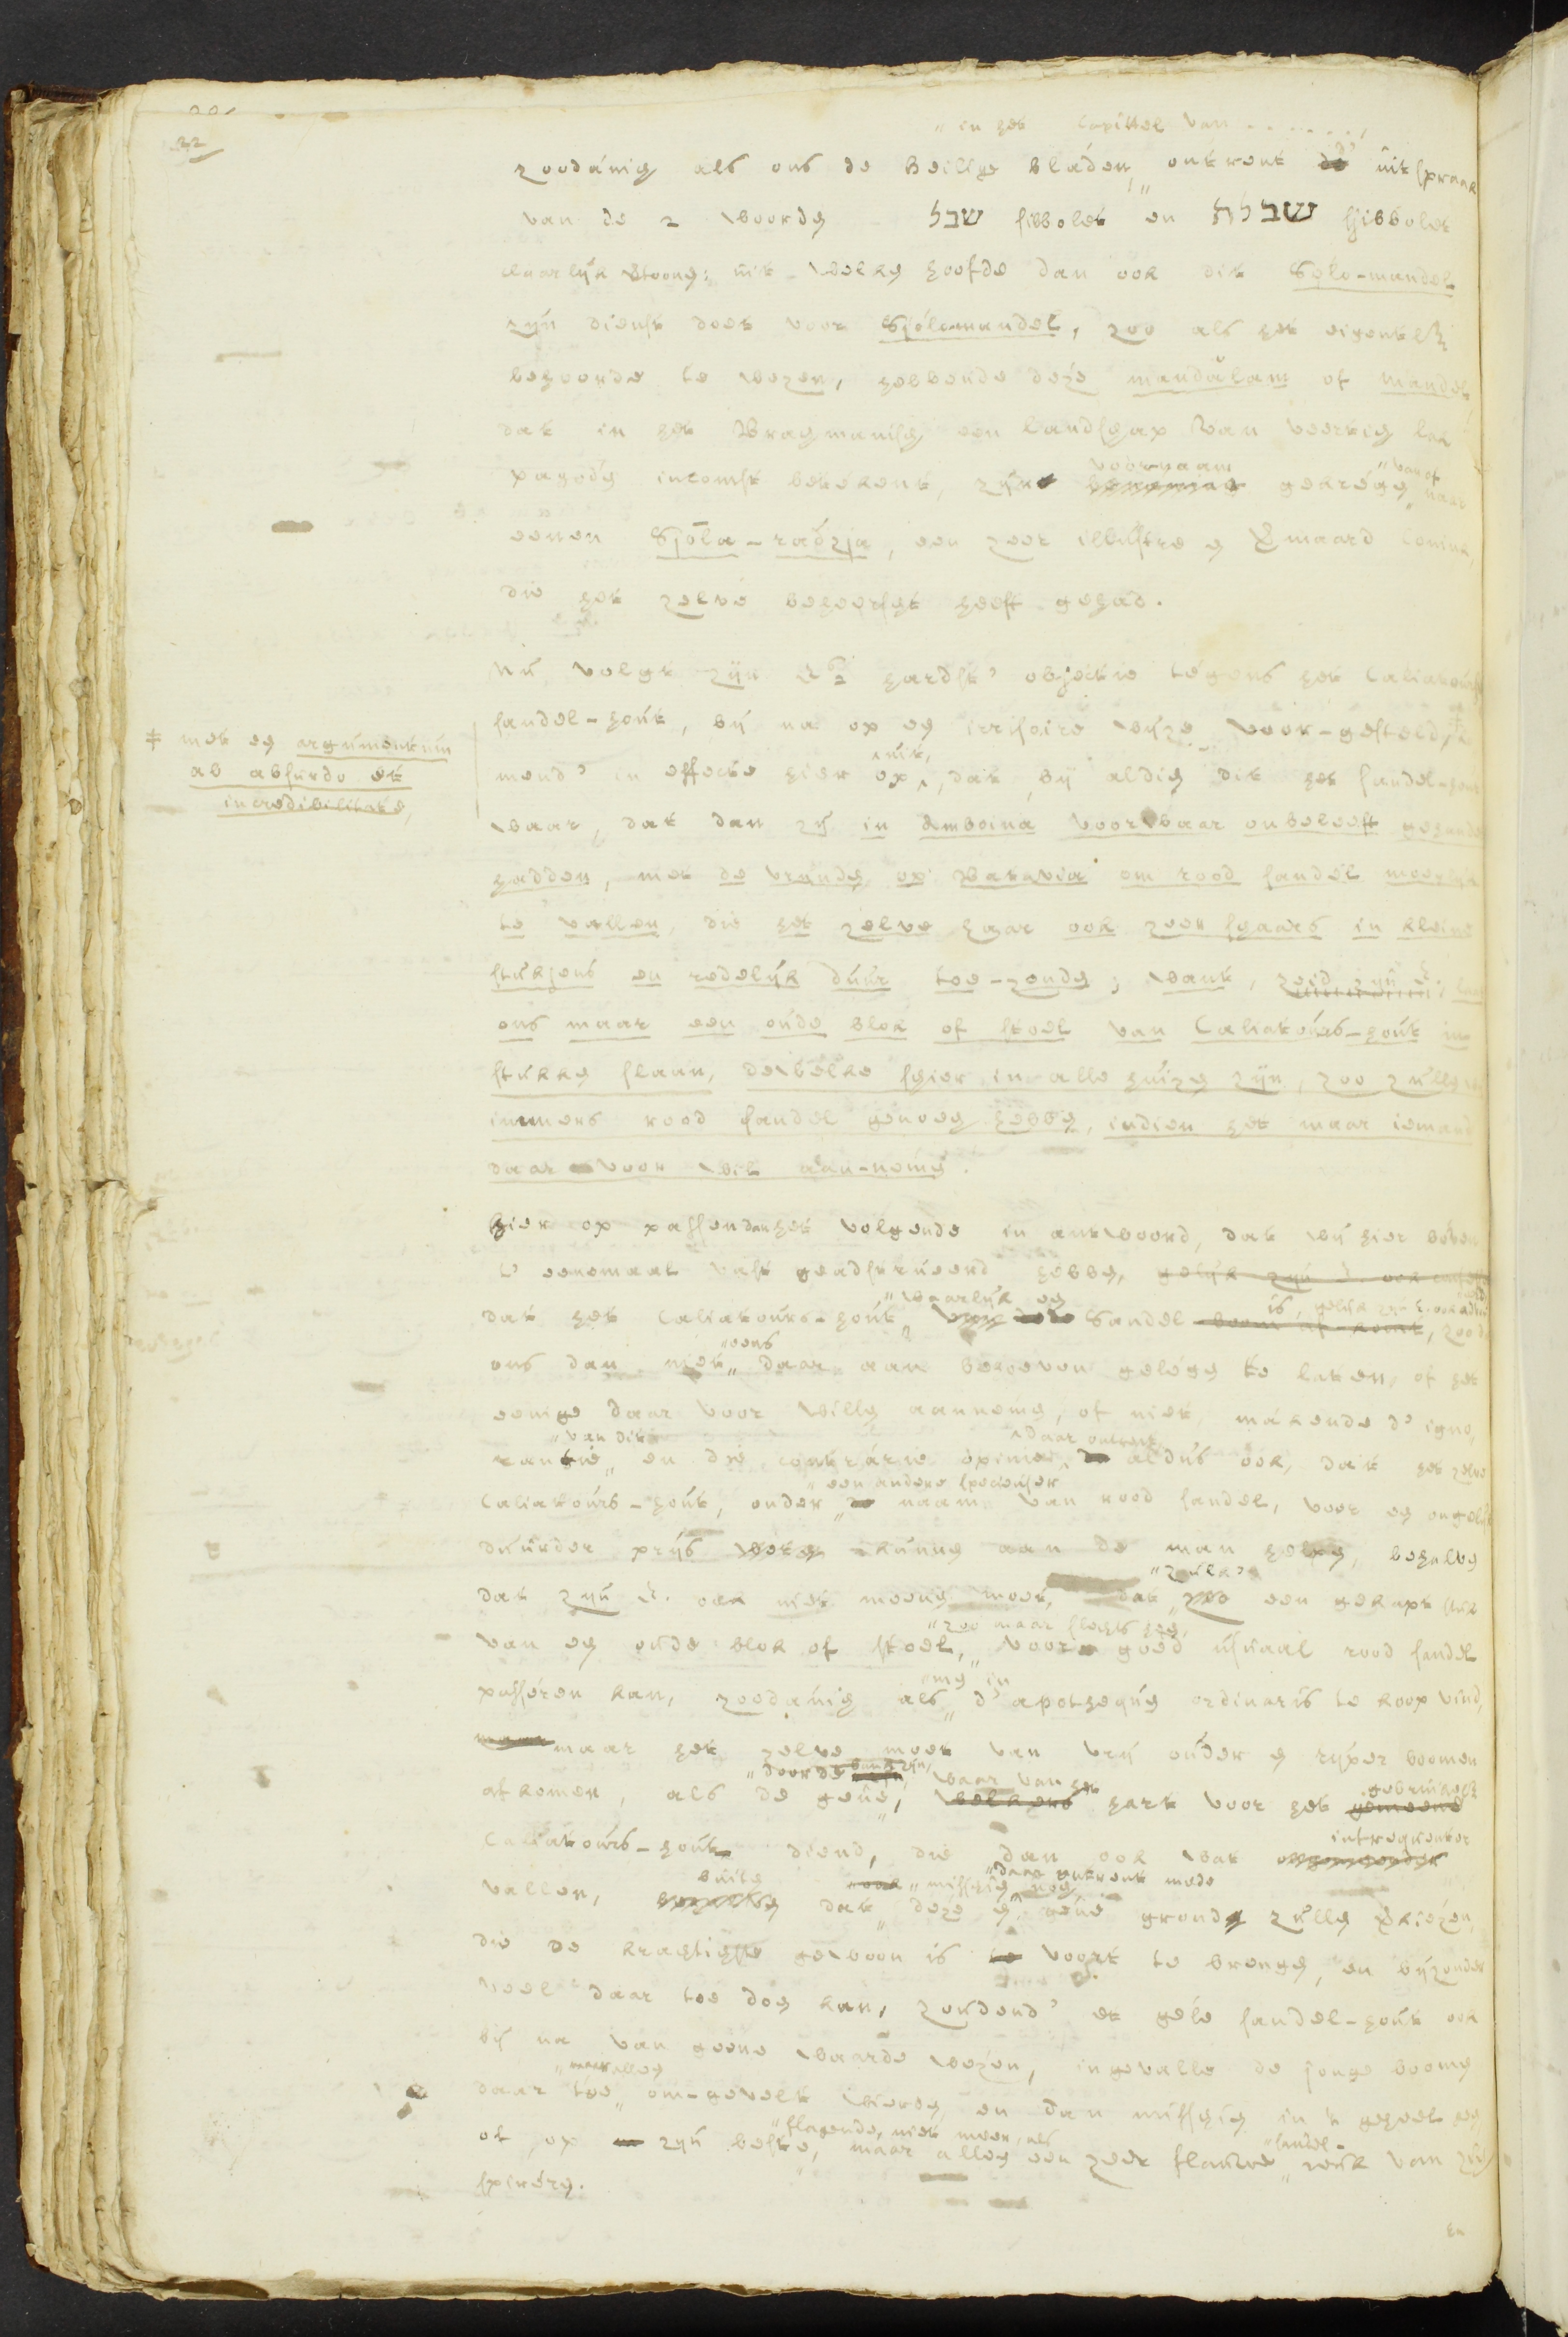 22
„ in het Capittel van . . . . . . . ,
zoodánig als ons de Heilige bláden „ ontrent de uitspraak
van de 2 woorde שבל sibbolet en שבלת sjibbolet
claarlijk toone: uit welke hoofde dan ook dit Solo-mandel
zijn dienst doet voor Sjólemandel, zoo als het eigentl:
behoorde te wezen, hebbende deze mandálam of mandel
dat in het Bragmanisch een landschap van veertig
pagode incomst betekent, zijn voornaam gekrége „ van of naar
eenen Sjōla-radzja, een zeer illustre Coning,
die het zelve beheerscht heeft gehad.
Nú volgt zijn hardst' objectie tégens het Caliatours
sandel-hout, bij na op een irrisoire wijze voor-gesteld,
mend' in effecte hier op uit, dat, bij aldien dit het sandel-hout
waar, dat dan zij in Amboina voorwaar onbeleeft gehandelt
hadden, met de vrinde op Batavia om rood sandel moeylijk
te vallen, die het zelve haar ook zeer schaars in kleine
stukjens en redelijk duur toe-zonde; want, zeid zijn E:,
ons maar een oude blok of stoel van Caliatours-hout in
stukke slaan, dewelke schier in alle huize zijn, zoo zulle
immers rood sandel genoeg hebbe, indien het maar iemand
daar voor wil aan-neme.
‡ met een argumentum
ab absurdo et
incredibilitate,
Hier op passen dan het volgende in antwoord, dat wij hier boven
t' eenemaal vast geadstrueerd hebbe, gelijk zijn E. ook
dat het Caliatours-hout „ waarlijk een Sandel is, gelijk zijn E. ook
ons dan niet „ eens daar aan behoeven gelége te laten, of het
eenige daar voor wille aanneme, of niet, makende d' igno,
rantie „ van dit „ en die contrárie opinie daar ontrent aldus ook, dat het zelve
Caliatours-hout, onder „ een andere specieuser naam van rood sandel, voor een ongelijk
duurder prijs kunne aan de man helpe, behalve
dat zijn E. ook niet meene moet, dat „ zulk' een gekapt stuk
van een oude blok of stoel, „ zoo maar slechts heen, voor goed usuaal rood sandel
passéren kan, zoodánig als „ men in d' apothequen ordinaris te koop vind,
maar het zelve moet van vrij ouder en ryper boomen
af komen, als de gene, „ door de bank zijn, waar van het hart voor het gebruikel:
Caliatours-hout diend, die dan ook wat intrequenter
vallen, buite dat „ misschien nog daar ontrent mede deze en gene gronde zulle kiezen,
die de krachtigste gewoon is voort te brenge, en bijzonder
veel daar toe doen kan, zoudend' et gele sandel-hout ook
bij na van geene waarde wezen, ingevalle de jonge boome
daar toe „ om-gevelt wierde, en dan misschien in 't geheel
of op zijn beste, „ slagende, niet meer, als maar alleen een zeer flauwe „ sandel- reuk van zich
spirére.
En